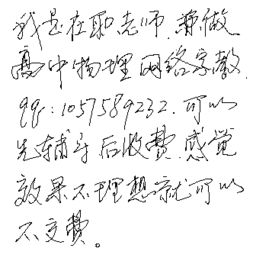 我是在职老师.兼做
高中物理网络家教.
qq:1057589232.可以
先辅导后收费.感觉
效果不理想就可以
不交费。